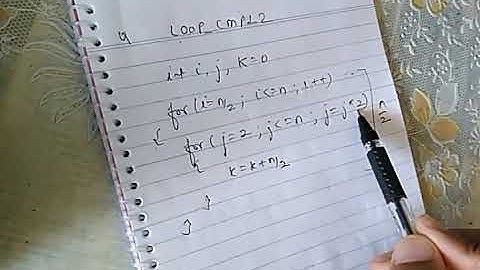 4 LOOP_CMPL2
int i, j, k=n
for(i=n/2; i<=n; i++)
{ for(j=2; j<=n; j=j*2) n/2
{ k=k+n/2
}
}